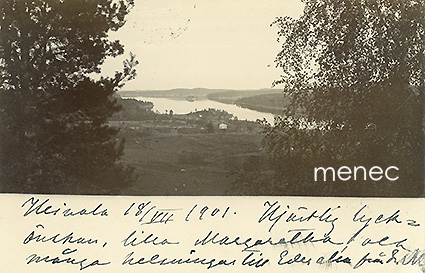 menec
Heinola 18/VII 1901. Hjärtlig lyck=
önskan, lilla Margaretha, och
många helsningar till Eder alla från